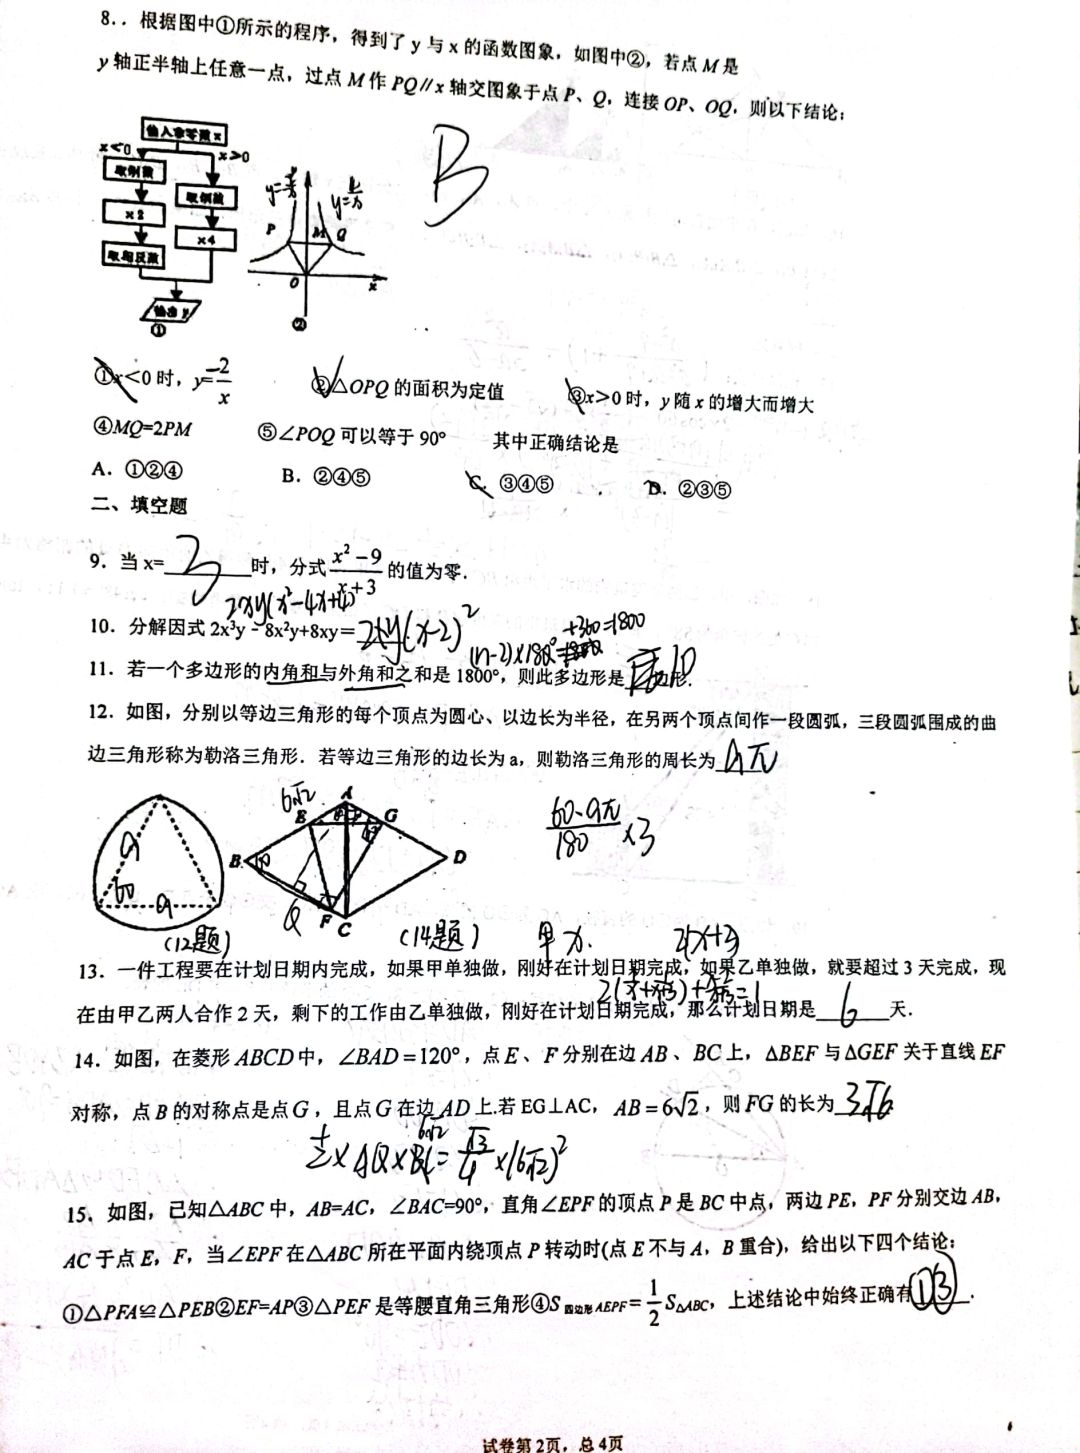 8.．根据图中①所示的程序，得到了 y 与 x 的函数图象，如图中②，若点 M 是
y 轴正半轴上任意一点，过点 M 作 PQ∥x 轴交图象于点 P、Q，连接 OP、OQ，则以下结论：
输入非零数 x
x<0 x>0
取倒数 取倒数
×2 ×4
取相反数
输出 y
①
P M Q
O x
②
B
①x<0 时，y=-2/x ②△OPQ 的面积为定值 ③x>0 时，y 随 x 的增大而增大
④MQ=2PM ⑤∠POQ 可以等于 90° 其中正确结论是
A．①②④ B．②④⑤ C．③④⑤ D．②③⑤
二、填空题
9．当 x=3时，分式 (x²-9)/(x+3) 的值为零．
2xy(x²-4x+4)
10．分解因式 2x³y-8x²y+8xy=2xy(x-2)²
(n-2)×180°+360=1800
11．若一个多边形的内角和与外角和之和是 1800°，则此多边形是 边形．
12．如图，分别以等边三角形的每个顶点为圆心、以边长为半径，在另两个顶点间作一段圆弧，三段圆弧围成的曲
边三角形称为勒洛三角形．若等边三角形的边长为 a，则勒洛三角形的周长为 aπ
a 60 a
6√2 A E G B D Q F C
60·aπ/180 ×3
(12题) (14题) 甲 x.
13．一件工程要在计划日期内完成，如果甲单独做，刚好在计划日期完成，如果乙单独做，就要超过 3 天完成，现
在由甲乙两人合作 2 天，剩下的工作由乙单独做，刚好在计划日期完成，那么计划日期是 6 天．
14．如图，在菱形 ABCD 中，∠BAD=120°，点 E、F 分别在边 AB、BC 上，△BEF 与△GEF 关于直线 EF
对称，点 B 的对称点是点 G，且点 G 在边 AD 上.若 EG⊥AC，AB=6√2，则 FG 的长为 3√6
1/2×AQ×BC=√3/4×(6√2)²
15．如图，已知△ABC 中，AB=AC，∠BAC=90°，直角∠EPF 的顶点 P 是 BC 中点，两边 PE，PF 分别交边 AB，
AC 于点 E，F，当∠EPF 在△ABC 所在平面内绕顶点 P 转动时(点 E 不与 A，B 重合)，给出以下四个结论：
①△PFA≌△PEB②EF=AP③△PEF 是等腰直角三角形④S四边形AEPF=1/2 S△ABC，上述结论中始终正确有①③．
试卷第 2页，总 4页